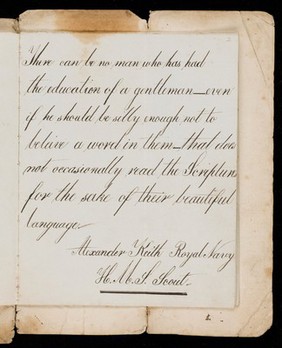 There can be no man who has had
the education of a gentleman—even
if he should be silly enough not to
beleive a word in them—that does
not occasionally read the Scriptures
for the sake of their beautiful
language.
Alexander Keith Royal Navy
H.M.S. Scout.